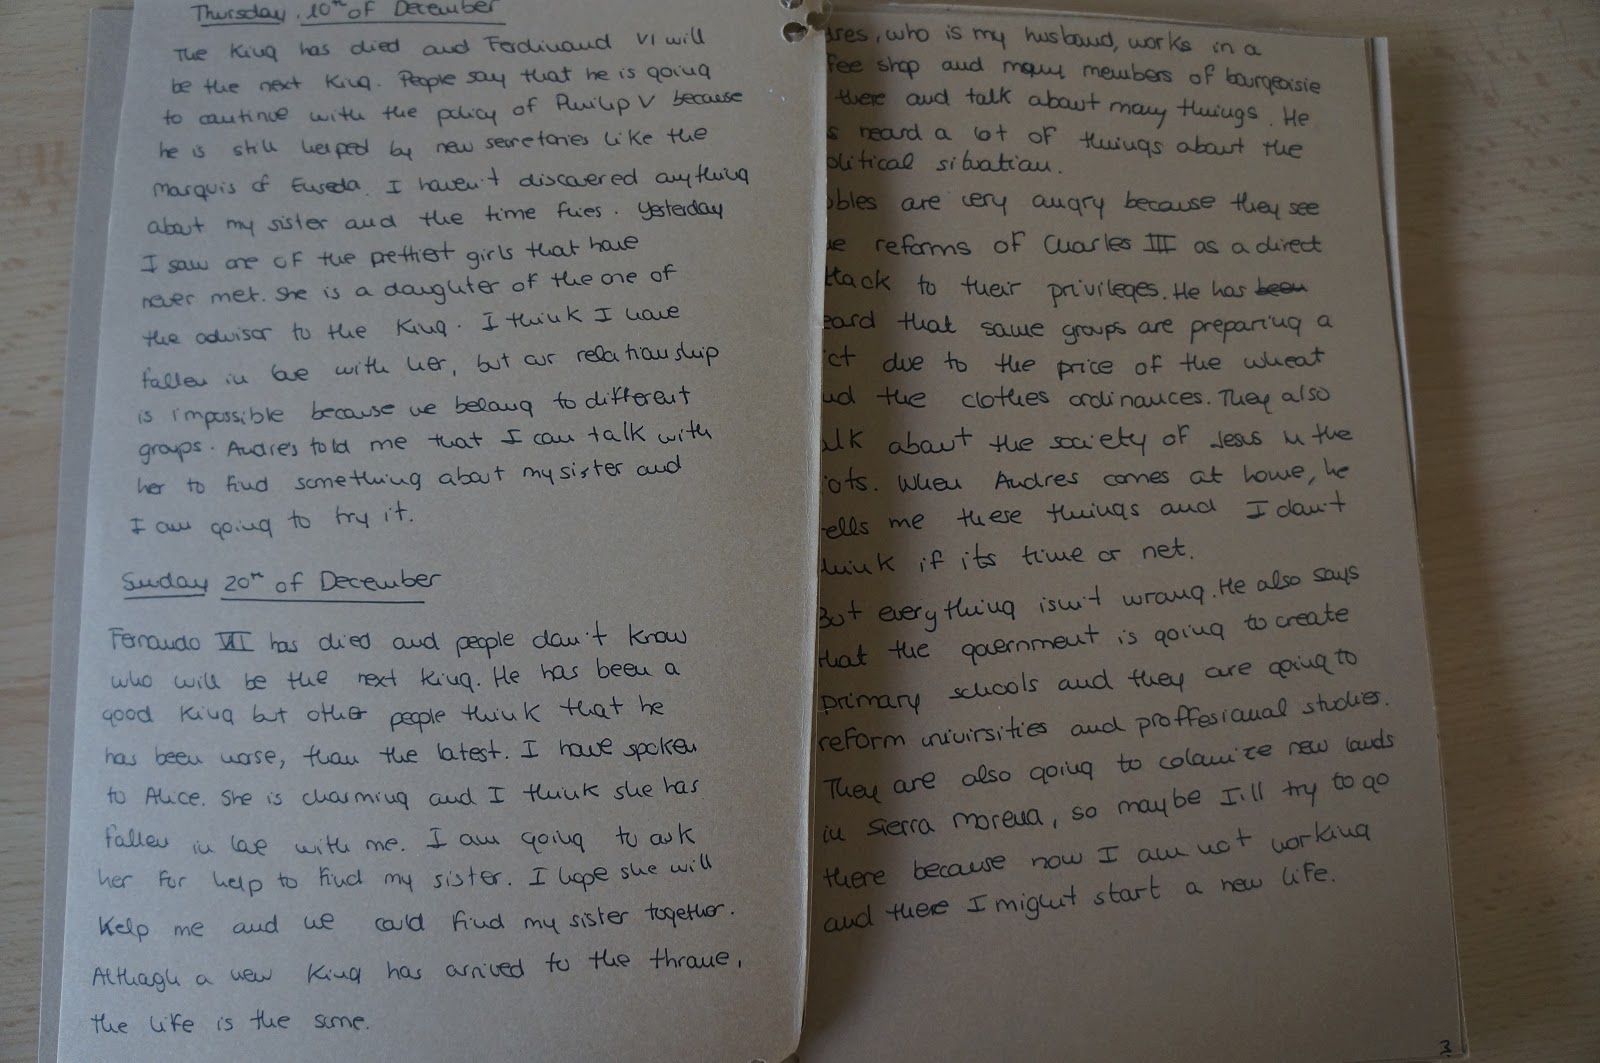 Thursday, 10th of December
The King has died and Ferdinand VI will
be the next King. People say that he is going
to continue with the policy of Philip V because
he is still helped by new secretaries like the
Marquis of Euseda. I haven't discovered anything
about my sister and the time flies. Yesterday
I saw one of the prettiest girls that have
never met. She is a daughter of the one of
the advisor to the King. I think I have
fallen in love with her, but our relationship
is impossible because we belong to different
groups. Andrés told me that I can talk with
her to find something about my sister and
I am going to try it.
Sunday 20th of December
Fernando VII has died and people don't know
who will be the next King. He has been a
good King but other people think that he
has been worse, than the latest. I have spoken
to Alice. She is charming and I think she has
fallen in love with me. I am going to ask
her for help to find my sister. I hope she will
help me and we could find my sister together.
Althagh a new King has arrived to the throne,
the life is the same.
dres, who is my husband, works in a
fee shop and many members of bourgeoisie
there and talk about many things. He
s heard a lot of things about the
olitical situation.
obles are very angry because they see
e reforms of Charles III as a direct
ttack to their privileges. He has been
eard that some groups are preparing a
ot due to the price of the wheat
nd the clothes ordinances. They also
alk about the society of Jesus in the
iots. When Andres comes at home, he
tells me these things and I don't
think if its time or not.
But everything isn't wrong. He also says
that the government is going to create
primary schools and they are going to
reform univirsities and proffesional studies.
They are also going to colonize new lands
in Sierra Morena, so maybe I'll try to go
there because now I am not working
and there I might start a new life.
3